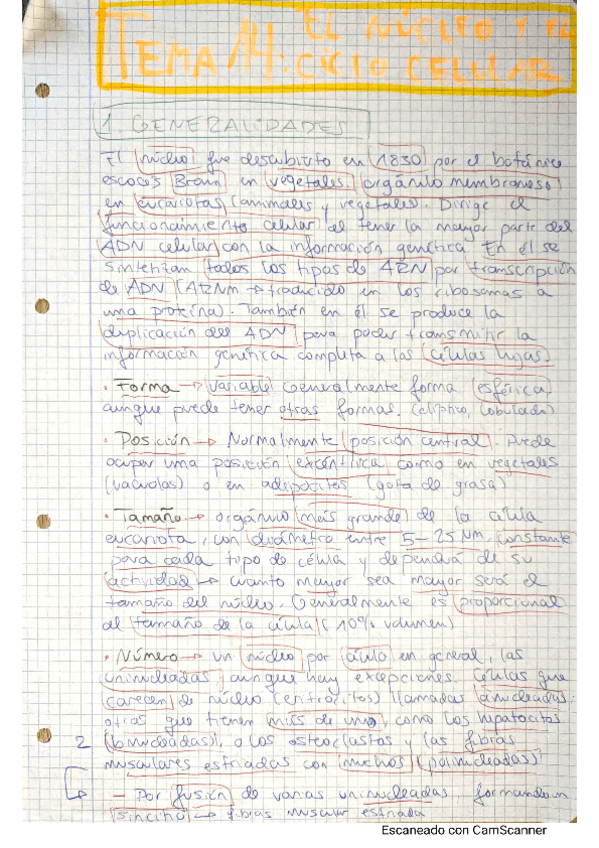 TEMA 14: EL NÚCLEO Y EL
CICLO CELULAR
1. GENERALIDADES
El núcleo fue descubierto en 1830 por el botánico
escocés Brown en vegetales. orgánulo membranoso
en eucariotas (animales y vegetales). Dirige el
funcionamiento celular al tener la mayor parte del
ADN celular con la información genética. En él se
sintetizan todos los tipos de ARN por transcripción
de ADN (ARNm → traducido en los ribosomas a
una proteína). También en él se produce la
duplicación del ADN para poder transmitir la
información genética completa a las células hijas.
· Forma → variable. Generalmente forma esférica,
aunque puede tener otras formas. (elíptico, lobulado)
· Posición → Normalmente posición central. Puede
ocupar una posición excéntrica como en vegetales
(vacuolas) o en adipocitos (gota de grasa)
· Tamaño → orgánulo más grande de la célula
eucariota, con diámetro entre 5-25 Nm, constante
para cada tipo de célula y dependerá de su
actividad → cuanto mayor sea mayor será el
tamaño del núcleo. Generalmente es proporcional
al tamaño de la célula (10% volumen)
· Número → un núcleo por célula en general, las
uninucleadas, aunque hay excepciones. Células que
carecen de núcleo (eritrocitos) llamadas anucleadas.
otras que tienen más de uno, como los hepatocitos
2 (binucleadas), o los osteoclastos y las fibras
musculares estriadas con muchos (polinucleadas)
- Por fusión de varias uninucleadas, formando un
sincitio → fibras muscular estriada
Escaneado con CamScanner